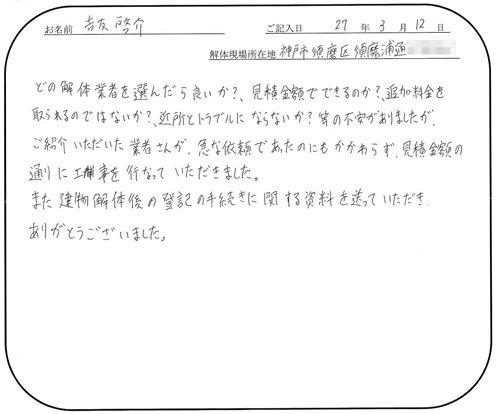 お名前 吉友 啓介 ご記入日 27 年 3 月 12 日
解体現場所在地 神戸市須磨区須磨浦通
どの解体業者を選んだら良いか?、見積金額でできるのか?、追加料金を
取られるのではないか?、近所とトラブルにならないか?等の不安がありましたが、
ご紹介いただいた業者さんが、急な依頼であったのにもかかわらず、見積金額の
通りに工事を行なっていただきました。
また建物解体後の登記の手続きに関する資料を送っていただき、
ありがとうございました。